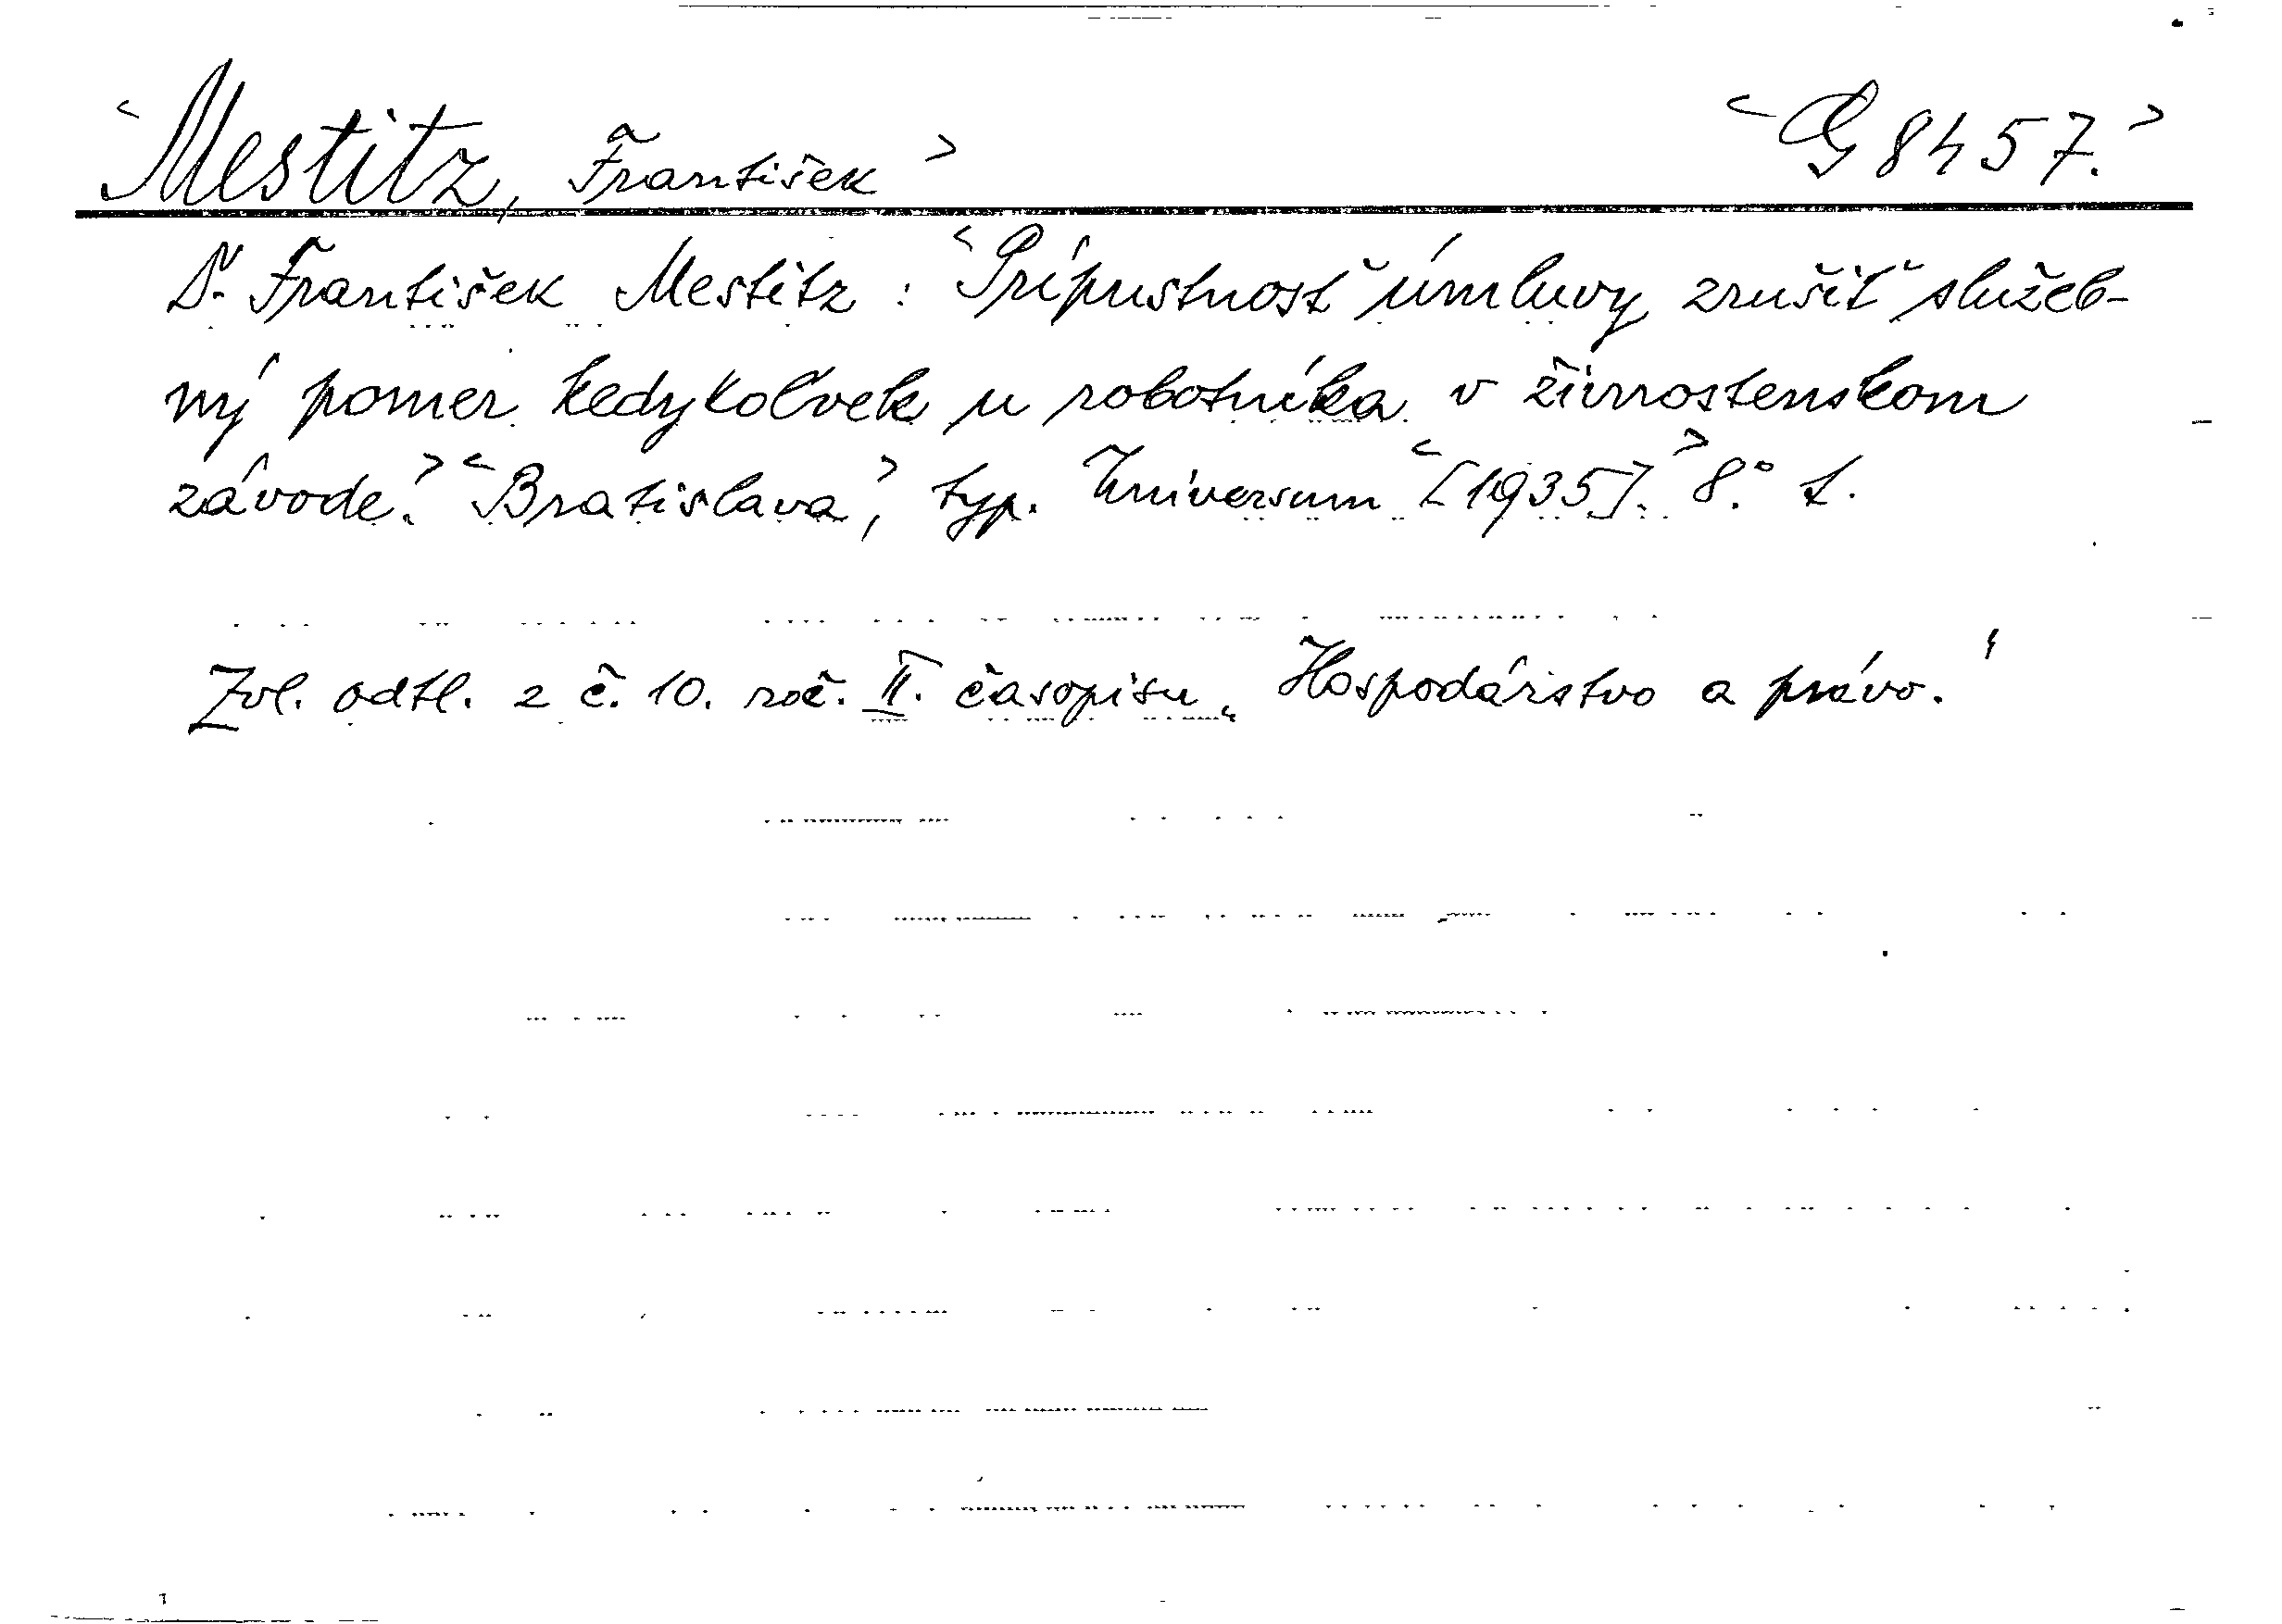 <Mestitz, František> <G 8457.>
Dr. František Mestitz: <Prípustnosť úmluvy zrušiť služeb-
ný pomer kedykoľvek u robotníka v živnostenskom
závode.> <Bratislava>, typ. Universum <[1935].> 8.° L.
Zvl. odtl. z č. 10. roč. II. časopisu „Hospodárstvo a právo.“